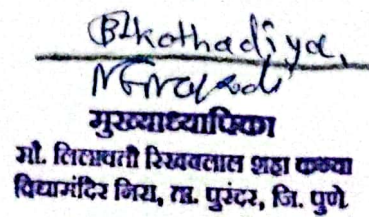 Bkothadiya.
मुख्याध्यापिका
सौ. लिलावती रिखवलाल शहा कन्या
विद्यामंदिर निरा, ता. पुरंदर, जि. पुणे